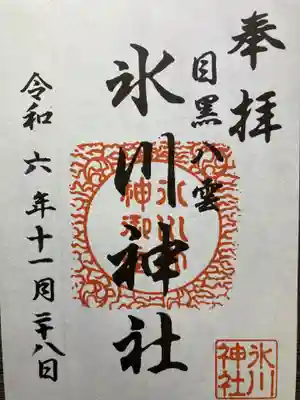 奉拝
目黒八雲
氷川神社
令和六年十一月二十八日
氷川神社